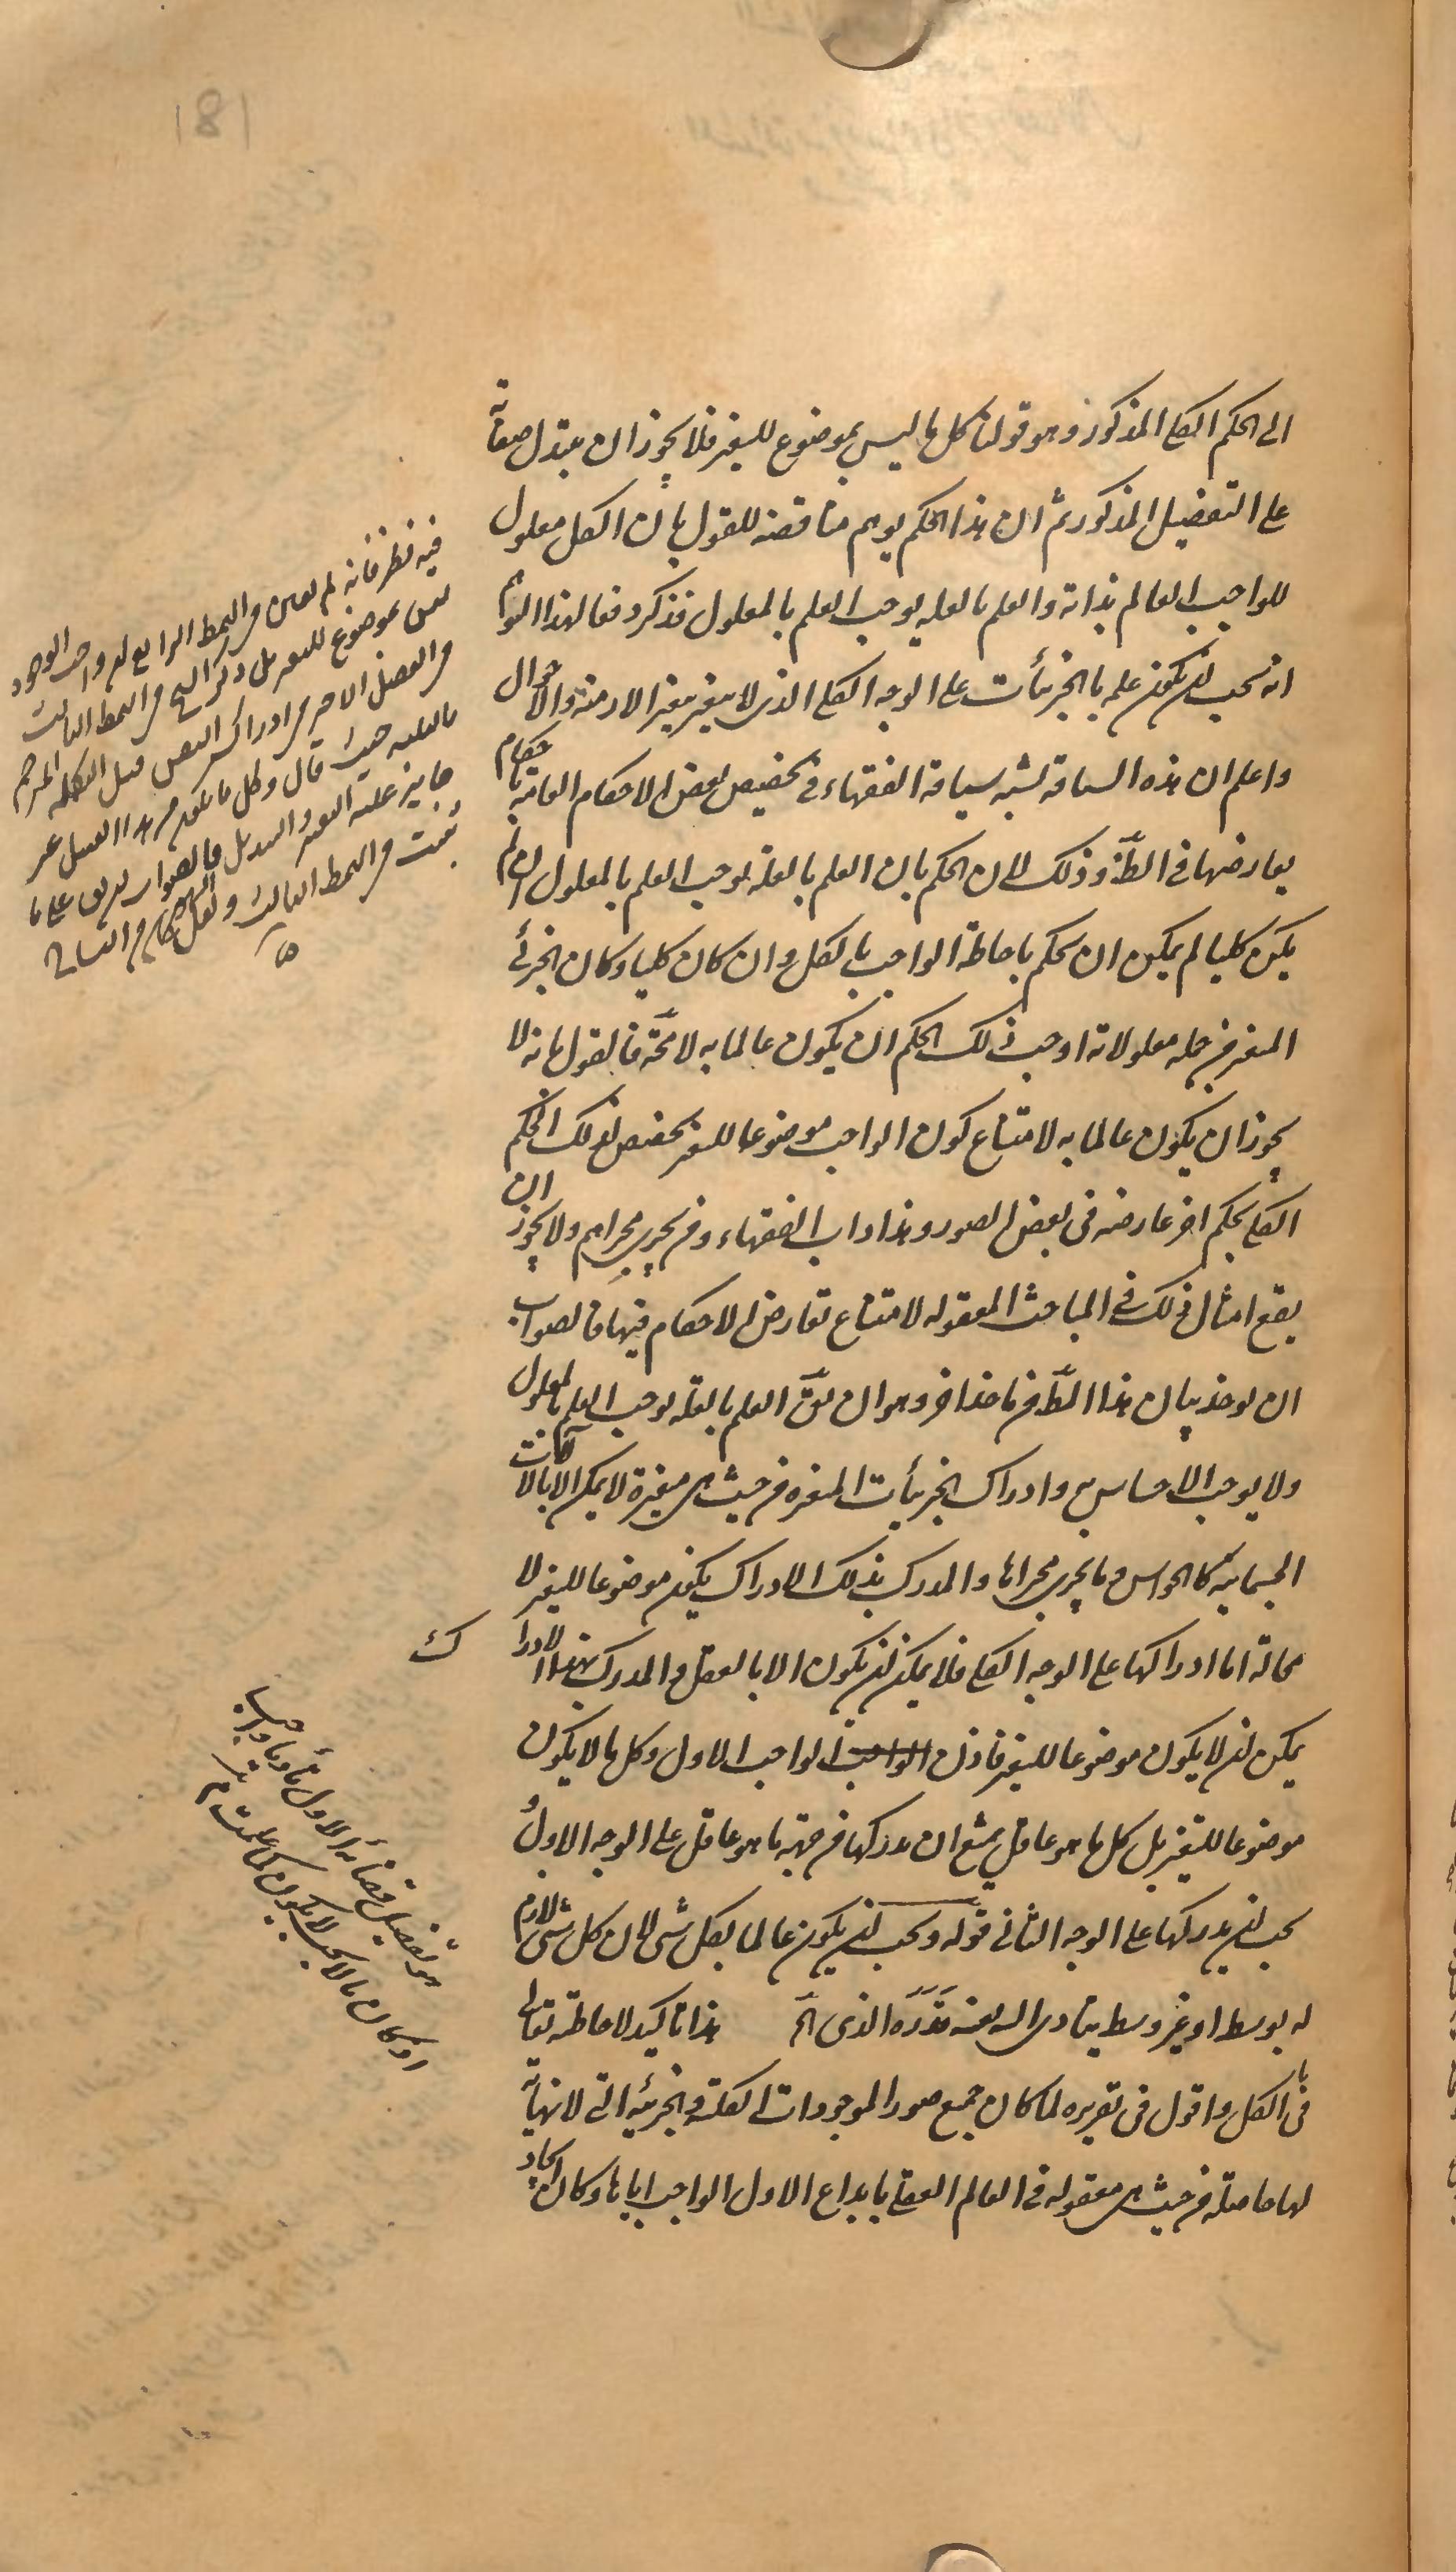 181
الى الحكم الكلى المذكور وهو قولنا كل ما ليس بموضوع للتغير فلا يجوز ان يتبدل صفاته
على التفصيل المذكور ثم ان هذا الحكم يوهم مناقضة للقول بان الكل معلول
للواجب العالم بذاته والعلم بالعله يوجب العلم بالمعلول فذكر دفعا لهذا الوهم
انه يجب ان يكون علمه بالجزئيات على الوجه الكلى الذى لا يتغير بتغير الازمنة والاحوال
واعلم ان هذه السياقة تشبه سياقة الفقهاء فى تخصيص بعض الاحكام العامة باحكام
يعارضها فى الظ وذلك لان الحكم بان العلم بالعلة يوجب العلم بالمعلول ان لم
يكن كليا لم يمكن ان يحكم باحاطة الواجب بالكل وان كان كليا وكان الجزئى
المتغير من جمله معلولاته اوجب ذلك الحكم ان يكون عالما به لا محة فالقول بانه لا
يجوز ان يكون عالما به لامتناع كون الواجب موضوعا للتغير تخصيص لذلك الحكم
الكلى بحكم اخر عارضه فى بعض الصور وهذا داب الفقهاء ومن يجرى مجراهم ولا يجوز ان
يقع امثال ذلك فى المباحث المعقوله لامتناع تعارض الاحكام فيها فالصواب
ان يوخذ بيان هذا المط من ماخذ اخر وهو ان يق العلم بالعلة يوجب العلم بالمعلول
ولا يوجب الاحساس به وادراك الجزئيات المتغيره من حيث هى متغيرة لا يمكن الا بالالات
الجسمانيه كالحواس وما يجرى مجراها والمدرك بذلك الادراك يكون موضوعا للتغير لا
محالة اما ادراكها على الوجه الكلى فلا يمكن ان يكون الا بالعقل والمدرك بهذا الادراك
يمكن ان لا يكون موضوعا للتغير فاذن الواجب الاول وكل ما لا يكون
موضوعا للتغير بل كل ما هو عاقل يمتنع ان يدركها من جهة ما هو عاقل على الوجه الاول
يجب ان يدركها على الوجه الثانى قوله ويجب ان يكون عالما بكل شى لان كل شى لازم
له بوسط او بغير وسط يتادى اليه بعينه قدره الذى الخ هذا تاكيد لاحاطته تعالى
بالكل واقول فى تقريره لما كان جميع صور الموجودات الكلية والجزئيه التى لا نهاية
لها حاصلة من حيث هى معقوله فى العالم العقلى بابداع الاول الواجب اياها وكان ايجاد
فيه نظر فانه لم يعين فى النمط الرابع ان واجب الوجود
ليس بموضوع للتغير بل ذكر الشيخ فى النمط الثالث
حيث قال وكل ما يكون من هذا القبيل
هو تفصيل قضائه الاول تأديا واجبا
اذ كان ما لا يجب لا يكون كما علمت